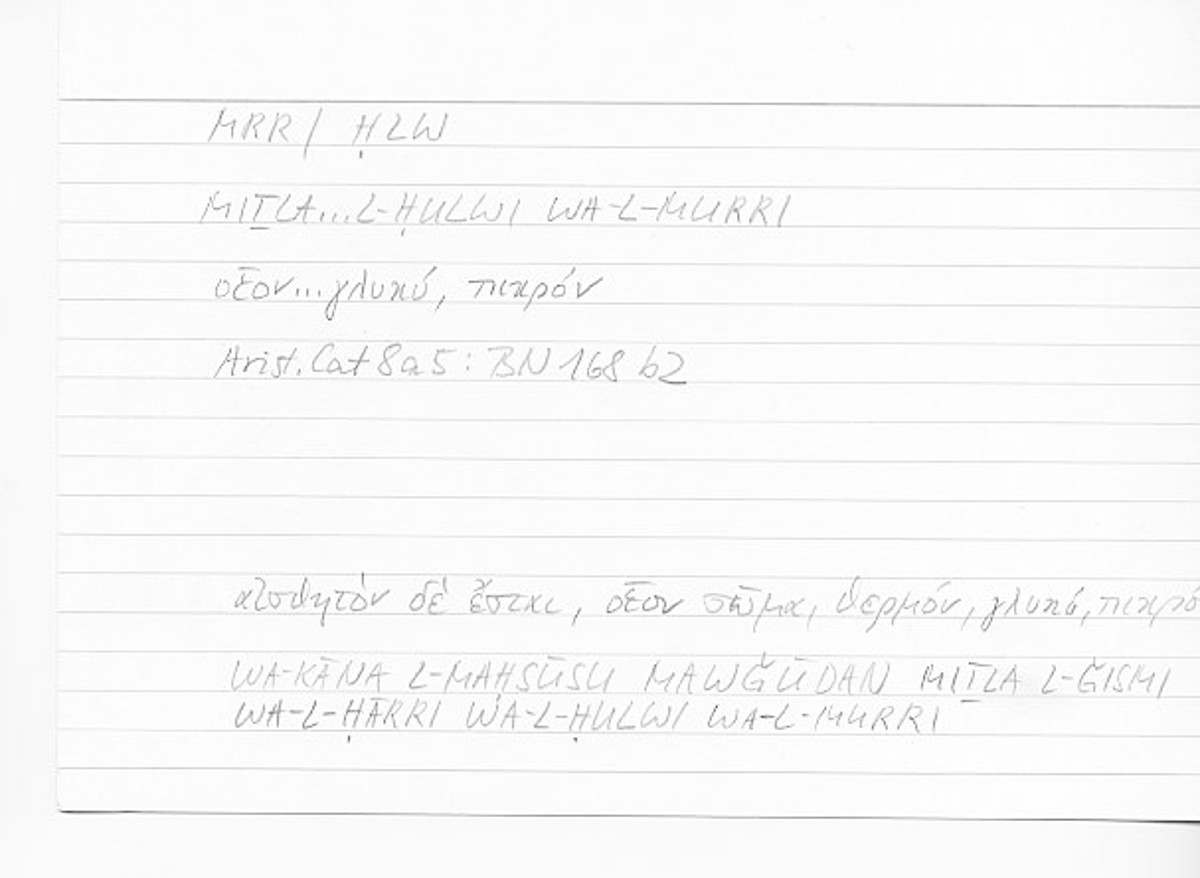 MRR / ḤLW
MIṮLA...L-ḤULWI WA-L-MURRI
οἷον...γλυκύ, πικρόν
Arist. Cat 8a5 : BN 168 b2
αἰσθητὸν δὲ ἔσται, οἷον σῶμα, θερμόν, γλυκύ, πικρό
WA-KĀNA L-MAḤSŪSU MAWǦŪDAN MIṮLA L-ǦISMI
WA-L-ḤĀRRI WA-L-ḤULWI WA-L-MURRI